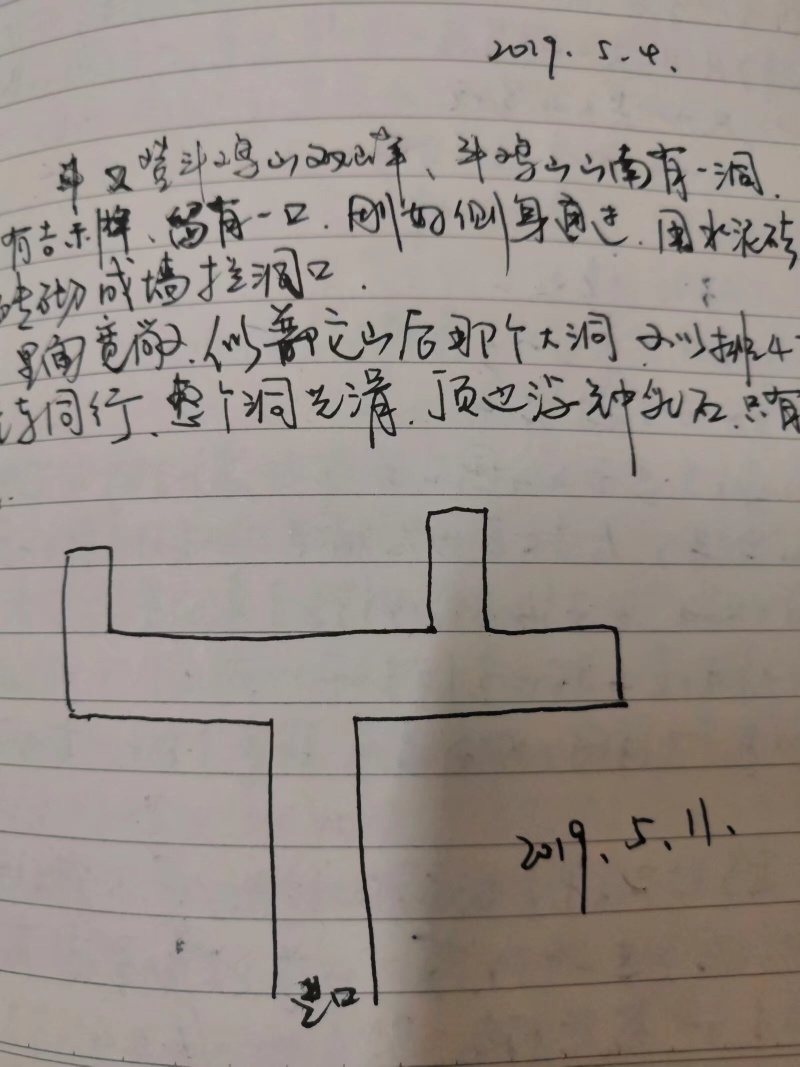 2019.5.4.
又登斗鸡山观洋、斗鸡山山南有一洞,
有告示牌、留有一口.刚好侧身通过.用水泥砖
砌成墙拦洞口.
里面宽敞,似普陀山后那个大洞,可以排4
同行、整个洞光滑.顶也没有钟乳石.只有
2019.5.11.
口